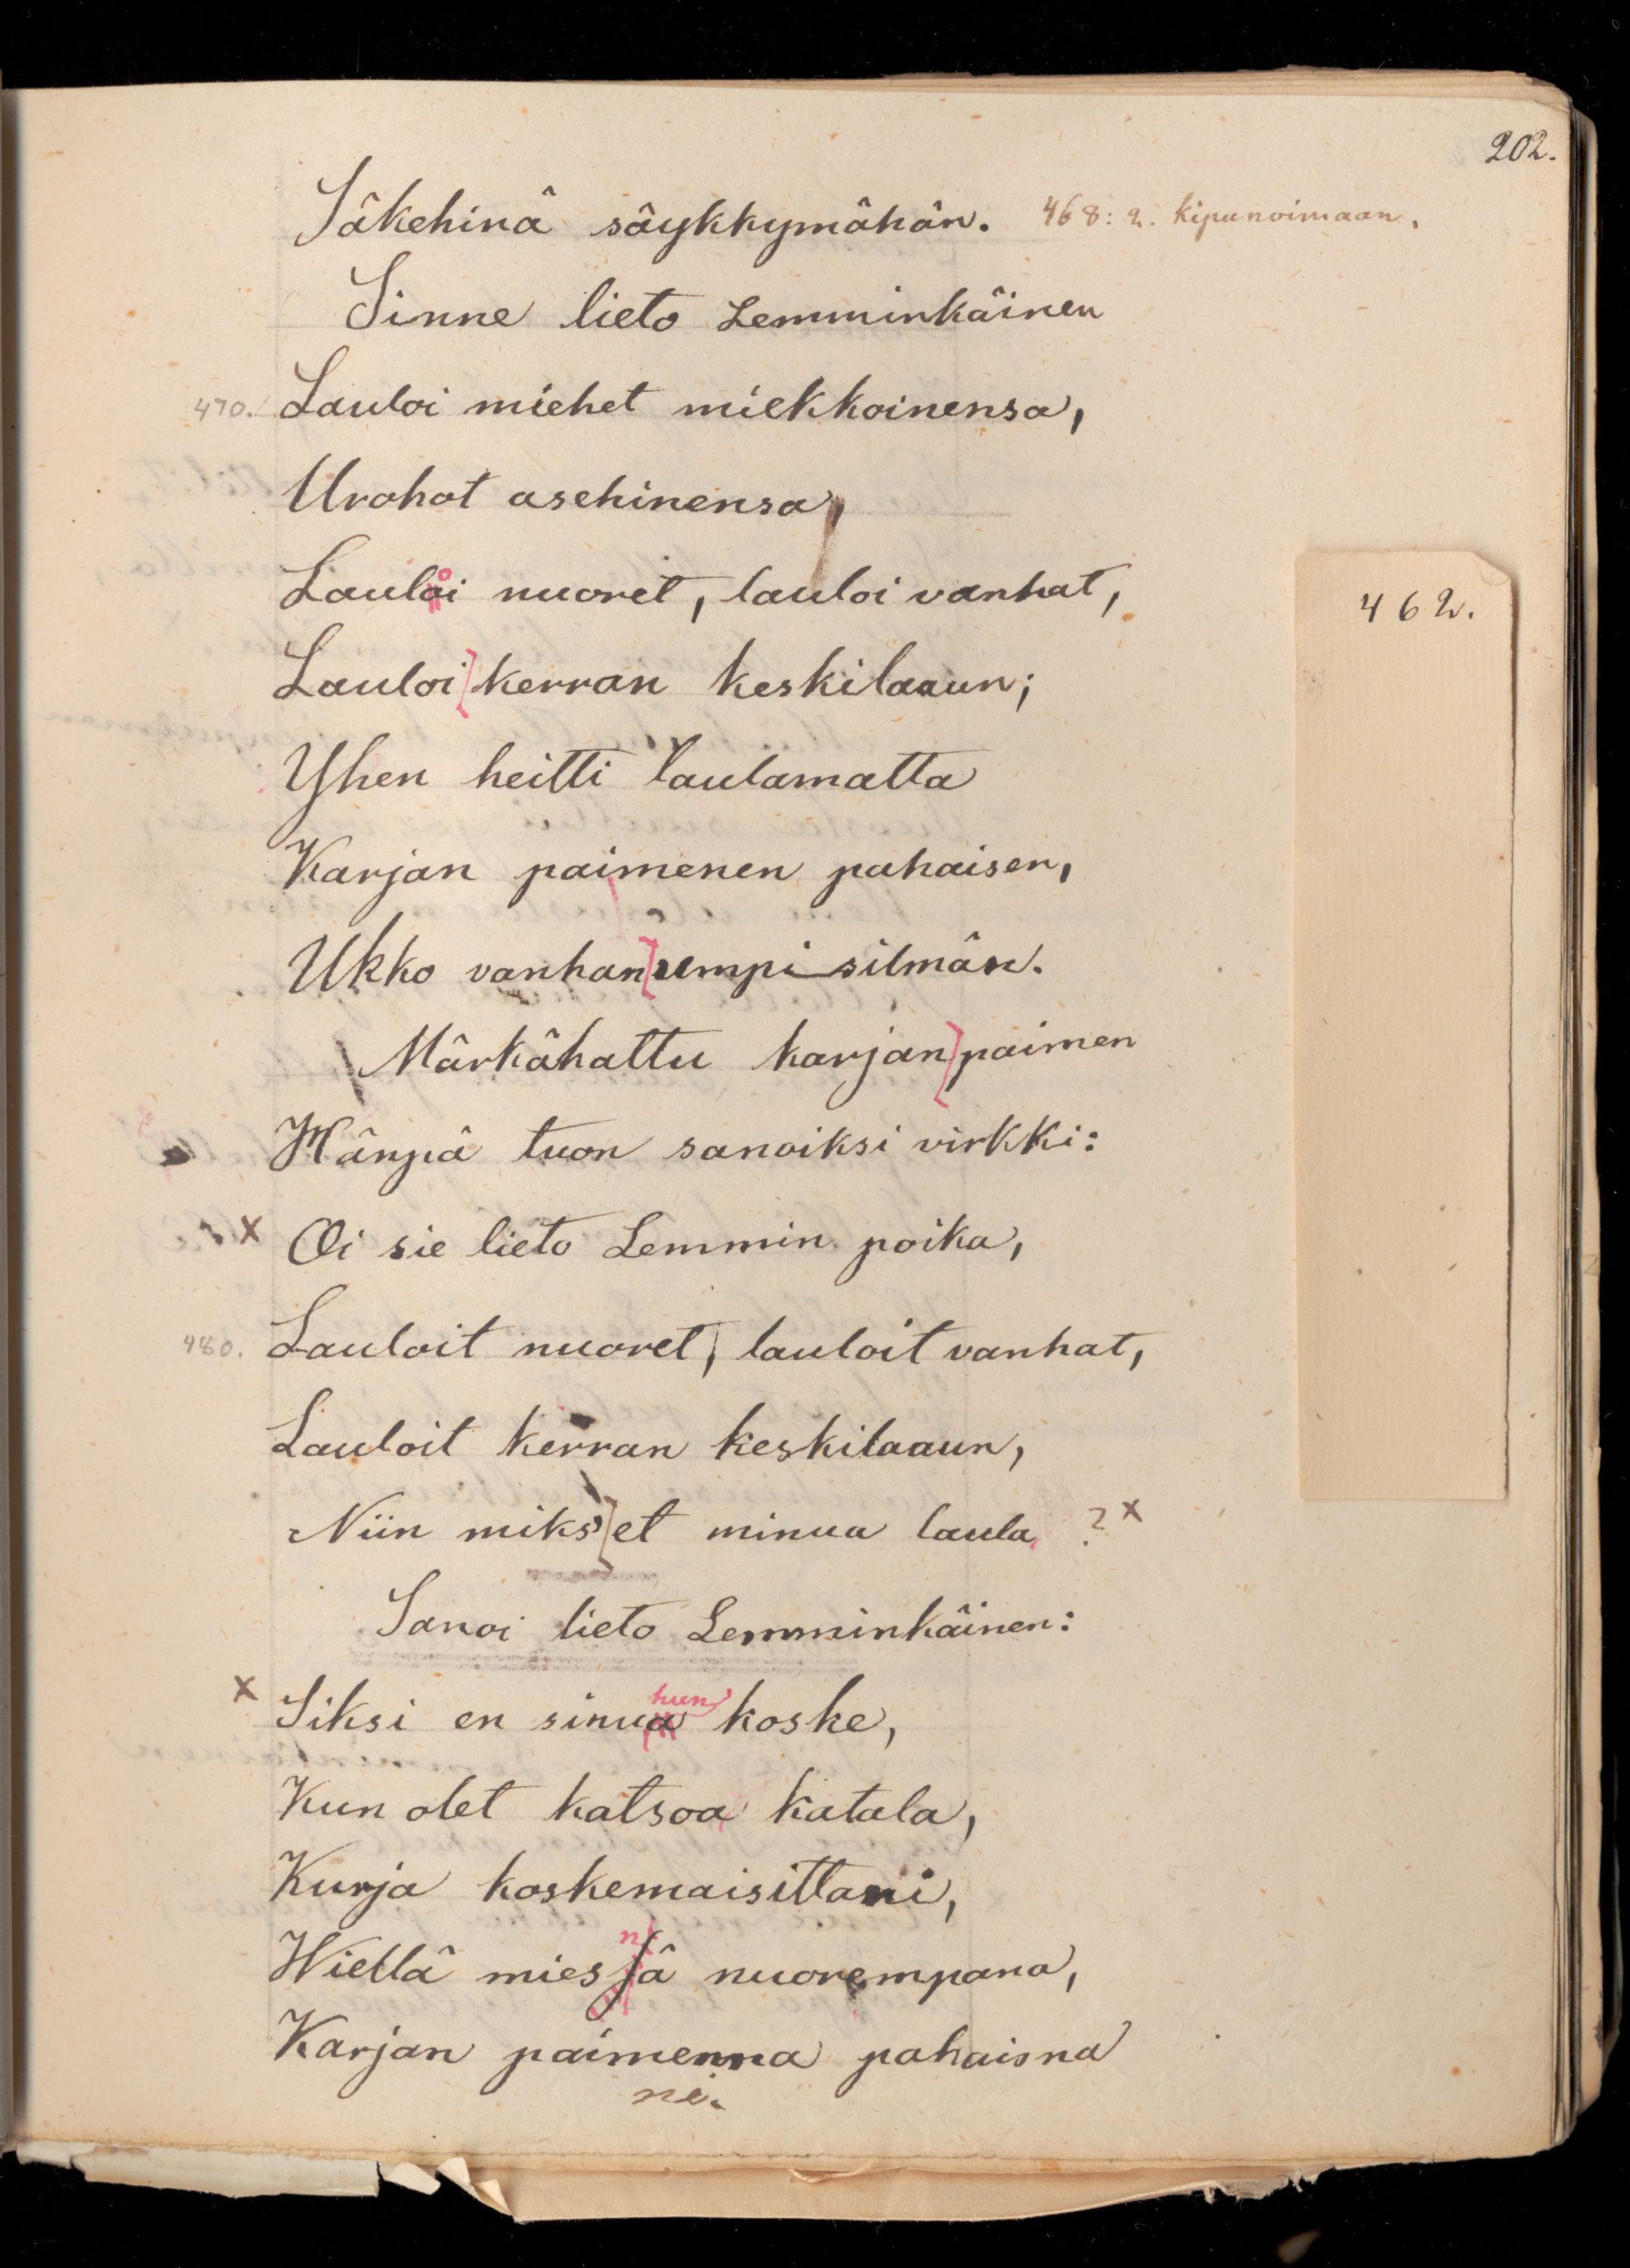 202.
Säkehinä säykkymähän. 468: 2. kipunoimaan.
Sinne lieto Lemminkäinen
470. Lauloi miehet miekkoinensa,
Urohot asehinensa,
Lauloi nuoret, lauloi vanhat,
462.
Lauloi kerran keskilaaun;
Yhen heitti laulamatta
Karjan paimenen pahaisen,
Ukko vanhan umpisilmän.
Märkähattu karjan paimen
Hänpä tuon sanoiksi virkki:
x Oi sie lieto Lemmin poika,
480. Lauloit nuoret, lauloit vanhat,
Lauloit kerran keskilaaun,
Niin miks' et minua laula ? x
Sanoi lieto Lemminkäinen:
hun
x Siksi en sinua koske,
Kun olet katsoa katala,
Kurja koskemaisittani,
n
Wiellä miessä nuorempana,
Karjan paimenna pahaisna
ne.